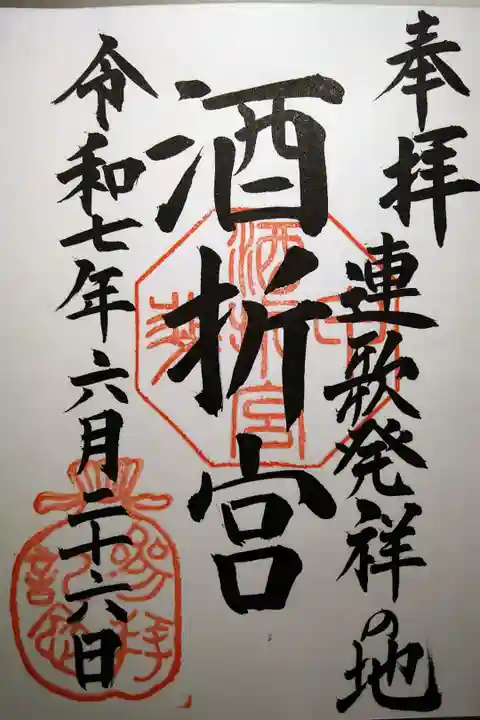 奉拝
連歌発祥の地
酒折宮
令和七年六月二十六日
酒折宮
参拝記念